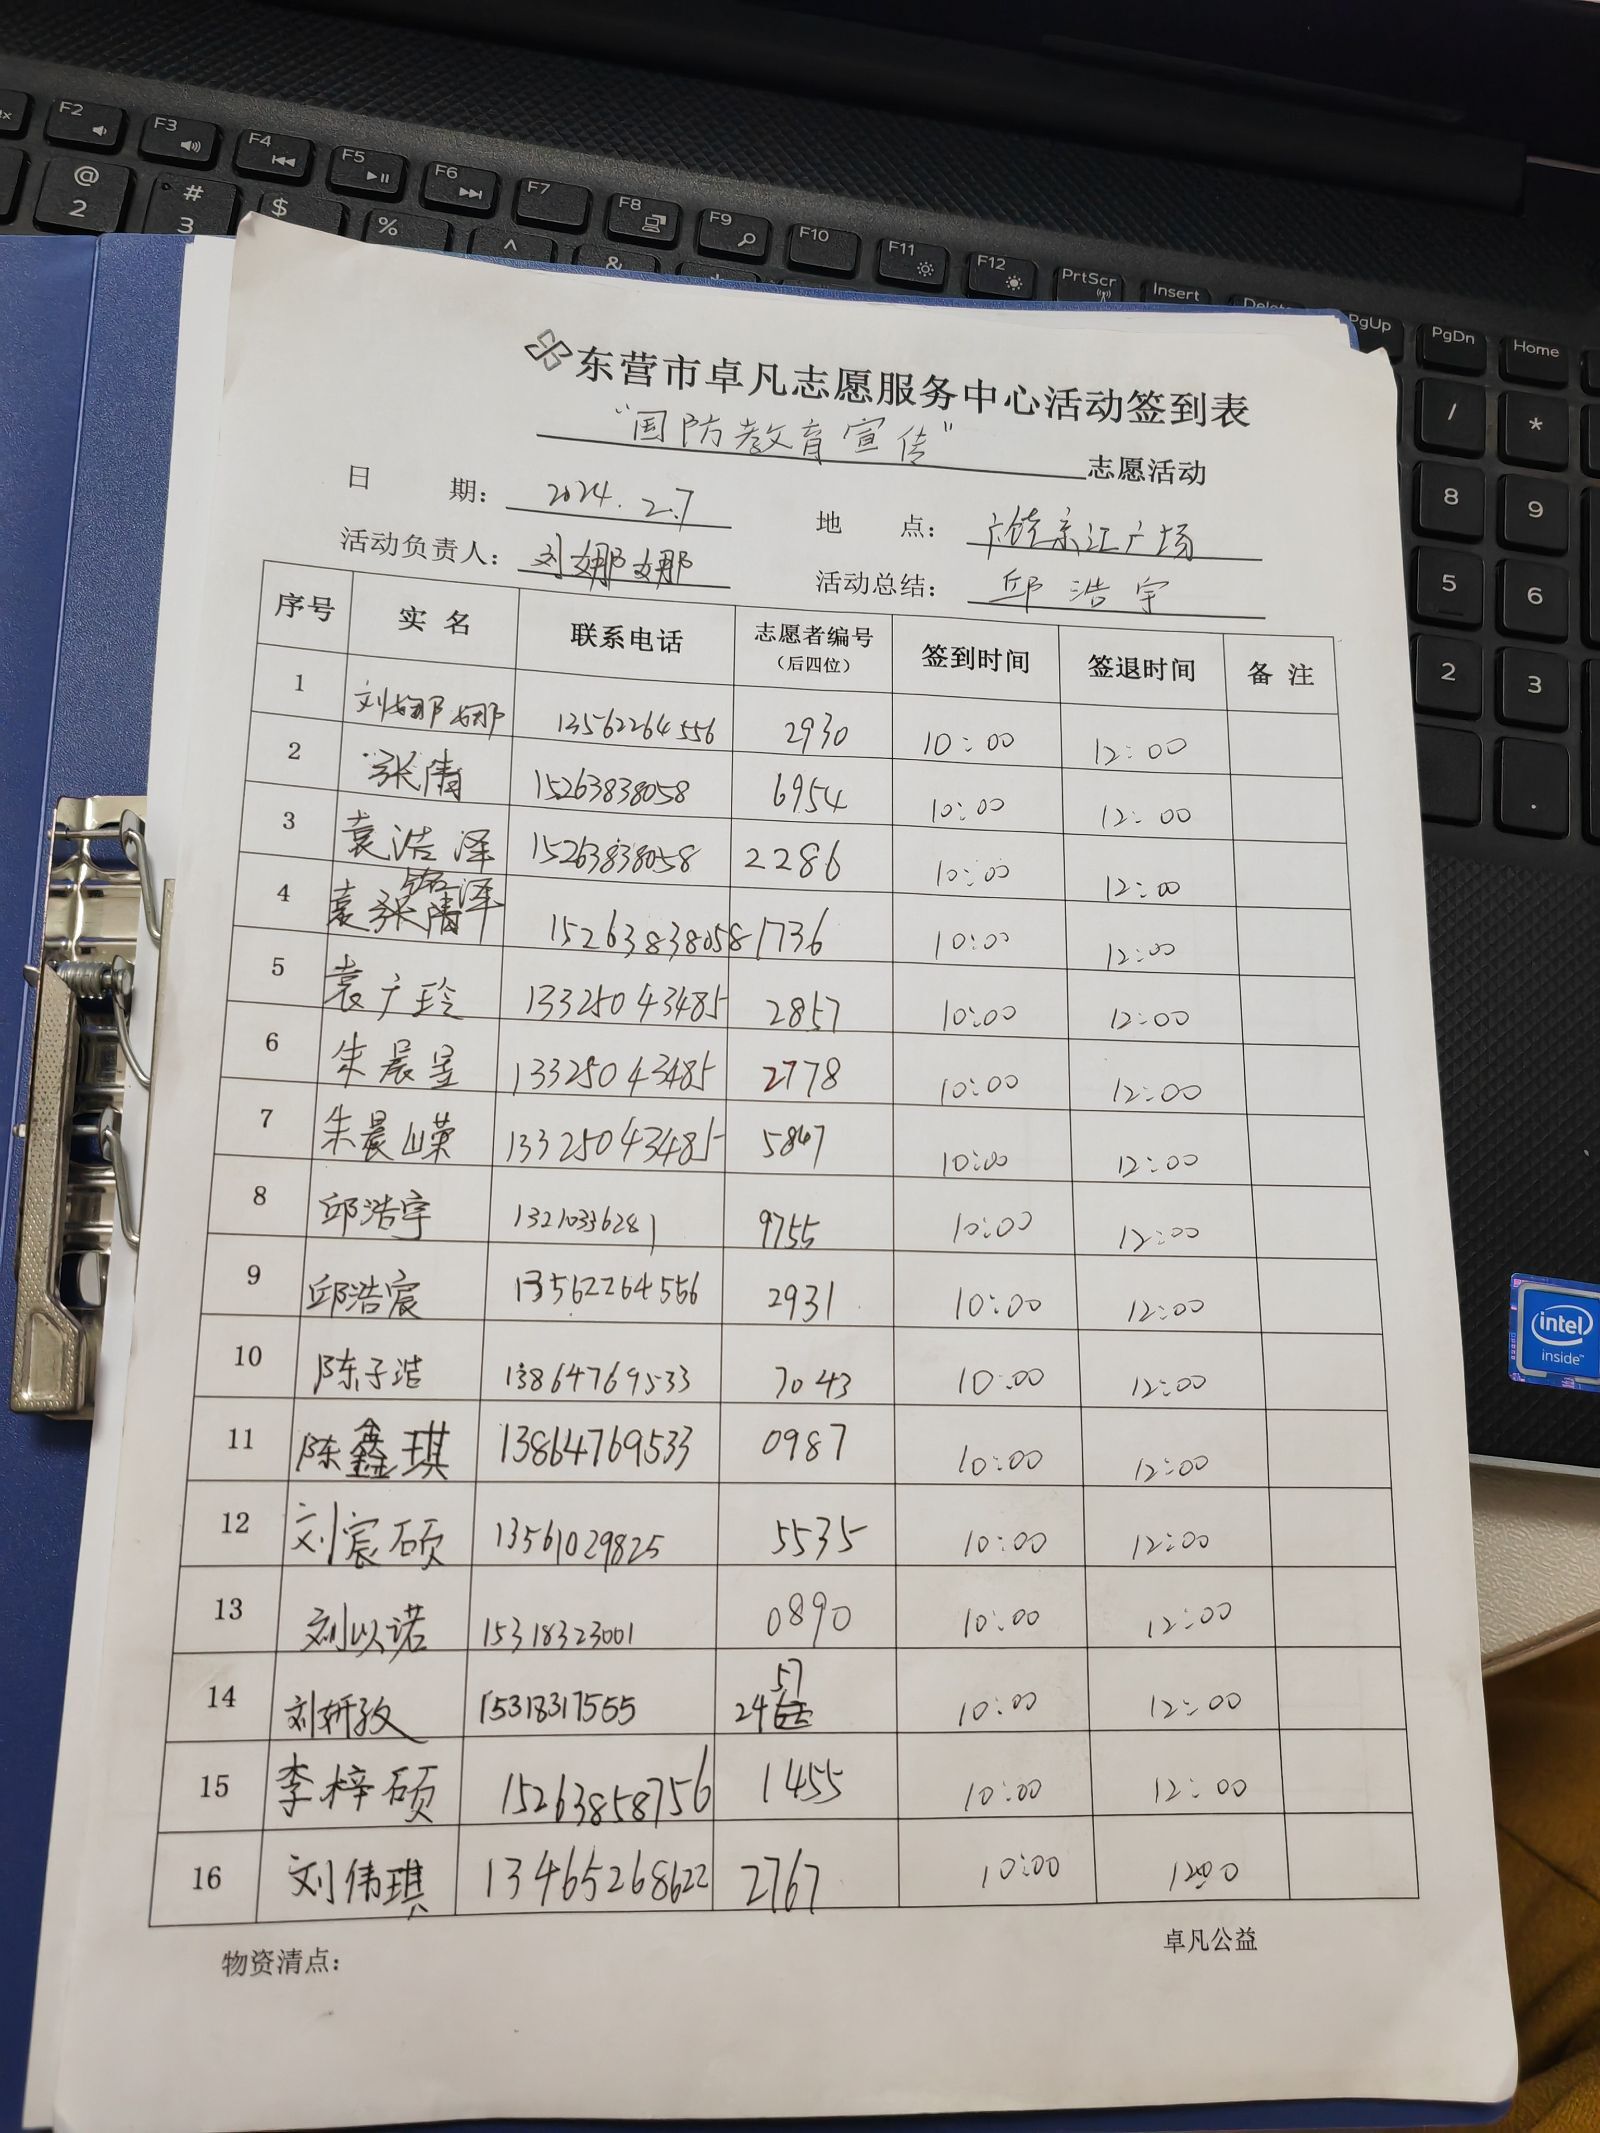 F2
F3
F4
F5
F6
F7
F8
F9
F10
F11
F12
PrtScr
Insert
Delete
PgUp
PgDn
Home
@
2
#
3
$
%
^
&
/
*
8
9
5
6
2
3
.
东营市卓凡志愿服务中心活动签到表
“国防教育宣传”志愿活动
日 期：2024.2.7 地 点：广饶京江广场
活动负责人：刘娜娜 活动总结：邱浩宇
序号 实名 联系电话 志愿者编号（后四位） 签到时间 签退时间 备注
1 刘娜娜 13562264556 2930 10:00 12:00
2 张倩 15263838058 6954 10:00 12:00
3 袁浩泽 15263838058 2286 10:00 12:00
4 袁铭泽 15263838058 1736 10:00 12:00
5 袁广玲 13325043485 2857 10:00 12:00
6 朱晨昱 13325043485 2778 10:00 12:00
7 朱晨嵘 13325043485 5847 10:00 12:00
8 邱浩宇 13210336281 9755 10:00 12:00
9 邱浩宸 13562264556 2931 10:00 12:00
10 陈子浩 13864769533 7043 10:00 12:00
11 陈鑫琪 13864769533 0987 10:00 12:00
12 刘宸硕 13561029825 5535 10:00 12:00
13 刘以诺 15318323001 0890 10:00 12:00
14 刘妍孜 15318317555 2457 10:00 12:00
15 李梓硕 15263858756 1455 10:00 12:00
16 刘伟琪 13465268622 2767 10:00 12:00
物资清点： 卓凡公益
intel
inside™